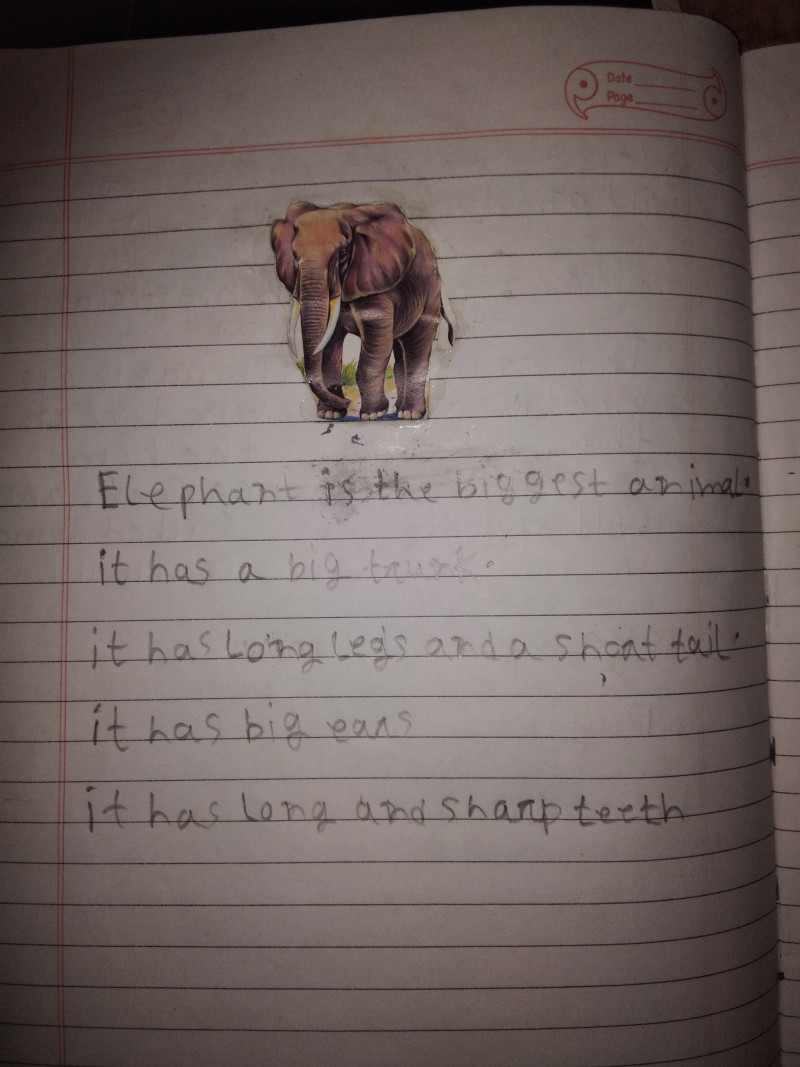 Date
Page
Elephant is the biggest animal.
it has a big trunk.
it has Long legs and a short tail.
it has big ears
it has long and sharp teeth